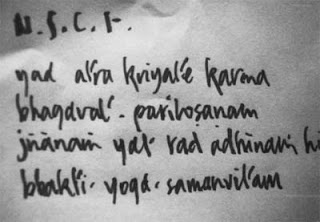 N.S.C.F.
yad atra kriyate karma
bhagavat-paritoṣanam
jñānaṁ yat tad adhīnaṁ hi
bhakti-yoga-samanvitam